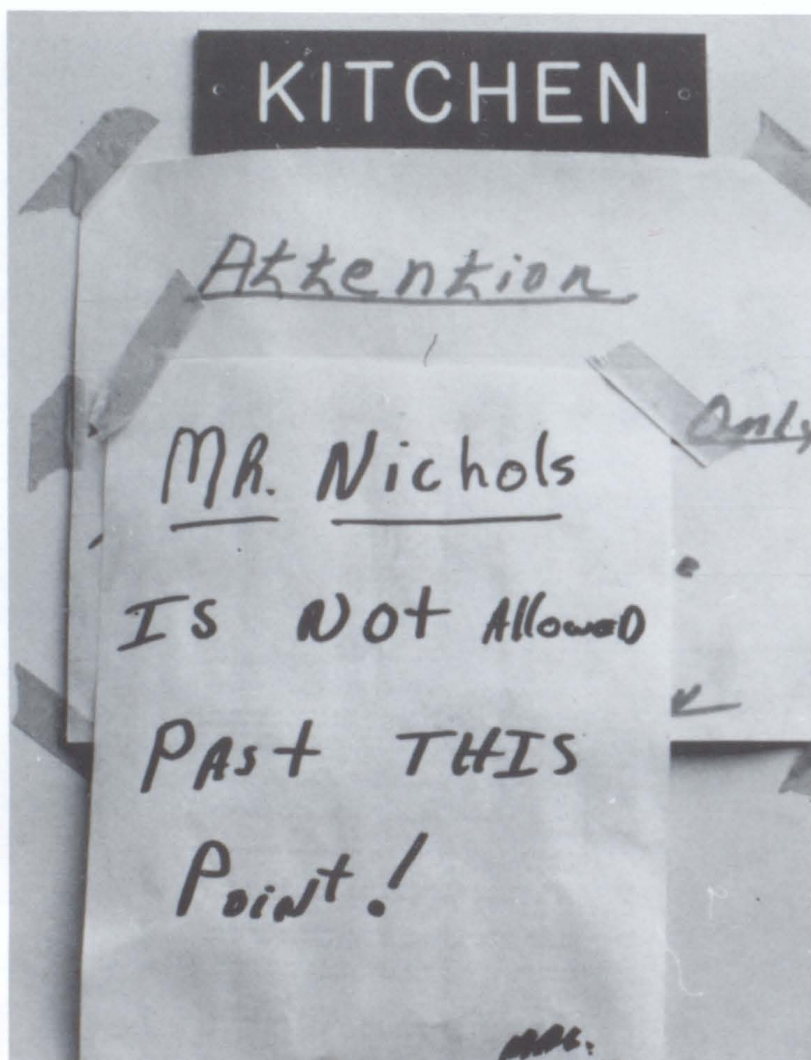 KITCHEN
Attention
Only
MR. Nichols
Is Not Allowed
Past THIS
Point!